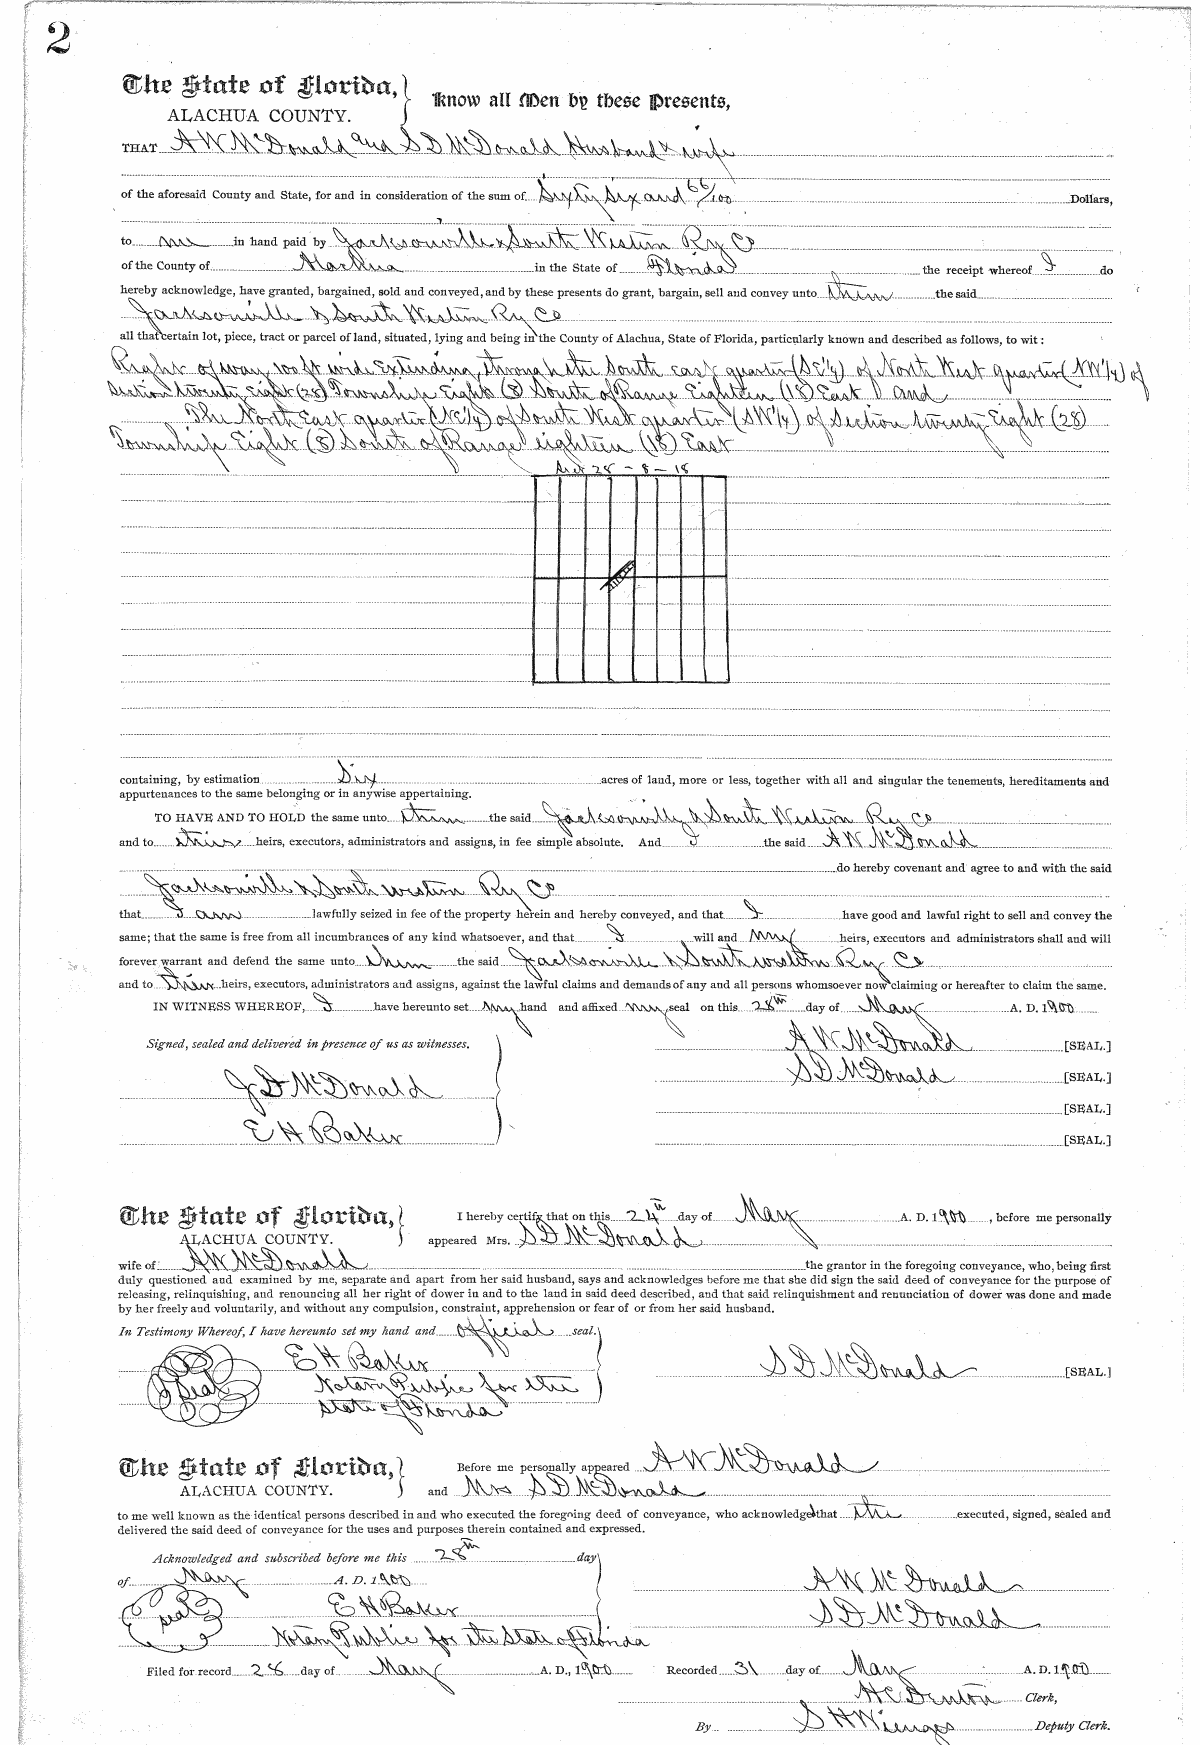 2
The State of Florida,
ALACHUA COUNTY.
Know all Men by these Presents,
THAT A W McDonald and S D McDonald Husband & wife
of the aforesaid County and State, for and in consideration of the sum of Sixty Six and 66/100 Dollars,
to me in hand paid by Jacksonville & South Western Ry Co
of the County of Alachua in the State of Florida the receipt whereof I do
hereby acknowledge, have granted, bargained, sold and conveyed, and by these presents do grant, bargain, sell and convey unto them the said
Jacksonville & South Western Ry Co
all that certain lot, piece, tract or parcel of land, situated, lying and being in the County of Alachua, State of Florida, particularly known and described as follows, to wit:
Right of way 100 ft wide Extending through the South east quarter (SE 1/4) of North West quarter (NW 1/4) of
Section twenty Eight (28) Township Eight (8) South of Range Eighteen (18) East and
The North East quarter (NE 1/4) of South West quarter (SW 1/4) of Section twenty Eight (28)
Township Eight (8) South of Range eighteen (18) East
28 - 8 - 18
containing, by estimation Six acres of land, more or less, together with all and singular the tenements, hereditaments and
appurtenances to the same belonging or in anywise appertaining.
TO HAVE AND TO HOLD the same unto them the said Jacksonville & South Western Ry Co
and to their heirs, executors, administrators and assigns, in fee simple absolute. And I the said A W McDonald
do hereby covenant and agree to and with the said
Jacksonville & South western Ry Co
that I am lawfully seized in fee of the property herein and hereby conveyed, and that I have good and lawful right to sell and convey the
same; that the same is free from all incumbrances of any kind whatsoever, and that I will and my heirs, executors and administrators shall and will
forever warrant and defend the same unto them the said Jacksonville & South western Ry Co
and to their heirs, executors, administrators and assigns, against the lawful claims and demands of any and all persons whomsoever now claiming or hereafter to claim the same.
IN WITNESS WHEREOF, I have hereunto set my hand and affixed my seal on this 28th day of May A. D. 1900
Signed, sealed and delivered in presence of us as witnesses.
A W McDonald [SEAL.]
S D McDonald [SEAL.]
J D McDonald
[SEAL.]
E H Baker
[SEAL.]
The State of Florida,
ALACHUA COUNTY.
I hereby certify that on this 24th day of May A. D. 1900, before me personally
appeared Mrs. S D McDonald
wife of A W McDonald the grantor in the foregoing conveyance, who, being first
duly questioned and examined by me, separate and apart from her said husband, says and acknowledges before me that she did sign the said deed of conveyance for the purpose of
releasing, relinquishing, and renouncing all her right of dower in and to the land in said deed described, and that said relinquishment and renunciation of dower was done and made
by her freely and voluntarily, and without any compulsion, constraint, apprehension or fear of or from her said husband.
In Testimony Whereof, I have hereunto set my hand and official seal.
E H Baker
S D McDonald [SEAL.]
Seal
Notary Public for the
State of Florida
The State of Florida,
ALACHUA COUNTY.
Before me personally appeared A W McDonald
and Mrs S D McDonald
to me well known as the identical persons described in and who executed the foregoing deed of conveyance, who acknowledged that the executed, signed, sealed and
delivered the said deed of conveyance for the uses and purposes therein contained and expressed.
Acknowledged and subscribed before me this 28th day
of May A. D. 1900
A W McDonald
seal
E H Baker
S D McDonald
Notary Public for the State of Florida
Filed for record 28 day of May A. D., 1900 Recorded 31 day of May A. D. 1900
H C Denton Clerk,
By S H Wienges Deputy Clerk.